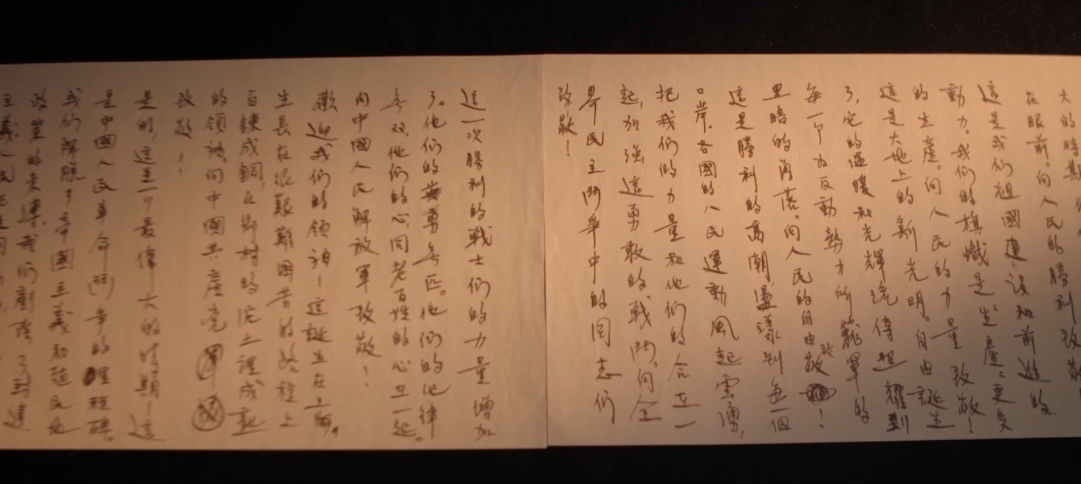 大的時期
在眼前，向人民的勝利致敬
這是我們祖國建設和前進的
動力。我們的旗幟是"生產"，更多
的生產。向人民的力量致敬！
這是大地上的新光明。自由誕生
了，它的溫暖和光輝流傳 耀到
每一个为反動勢力所籠罩的
黑暗的角落。向人民的自由致敬！
這是勝利的高潮，盪漾到每一個
口岸。各國的人民運動風起雲湧，
把我們的力量和他們的合在一
起，加強這勇敢的戰鬥。向全
界民主鬥爭中的同志們
致敬！
這一次勝利的戰士们的力量增加
了。他们的英勇無匹。他们的纪律
無双，他们的心同老百姓的心在一起。
向中國人民解放軍致敬！
歡迎我們的領袖—這誕生在上海，
生長在艱難困苦的路程上
百鍊成鋼，在鄉村的泥土裡成熟
的領袖。向中國共產党
致敬！
是的，這是一个最偉大的時期—這
是中國人民革命鬥爭的里程碑。
我們解脫了帝國主義和殖民地
政策的束縛。我們剷除了封建
主義。人民